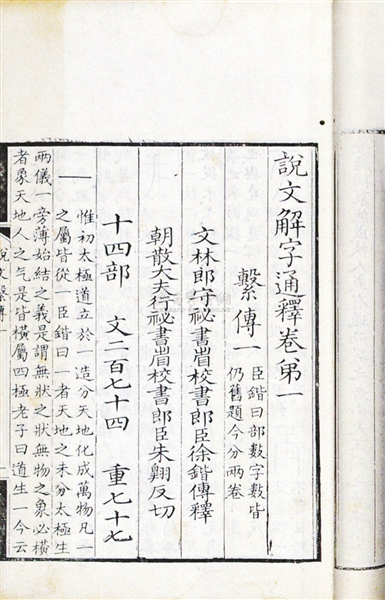 說文解字通釋卷第一
繫傳一
臣鍇曰部數字數皆
仍舊題今分兩卷
文林郎守祕書省校書郎臣徐鍇傳釋
朝散大夫行祕書省校書郎臣朱翱反切
十四部 文二百七十四 重七十七
一
惟初太極道立於一造分天地化成萬物凡一
之屬皆從一臣鍇曰一者天地之未分太極生
兩儀一旁薄始結之義是謂無狀之狀無物之象必橫
者象天地人之气是皆橫屬四極老子曰道生一今云
說文繫傳一